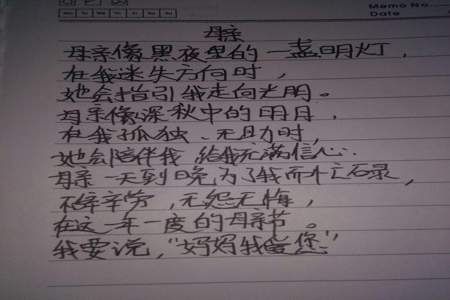 Memo No.
Date
母亲
母亲像黑夜里的一盏明灯，
在我迷失方向时，
她会指引我走向光明。
母亲像深秋中的明月，
在我孤独、无助时，
她会陪伴我，给我充满信心.
母亲一天到晚为了我而忙碌，
不辞辛劳，无怨无悔，
在这一年一度的母亲节。
我要说，"妈妈我爱您"